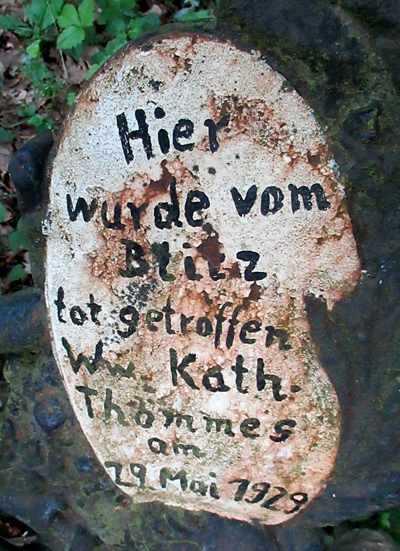 Hier
wurde vom
Blitz
tot getroffen
Ww. Kath.
Thömmes
am
29 Mai 1929